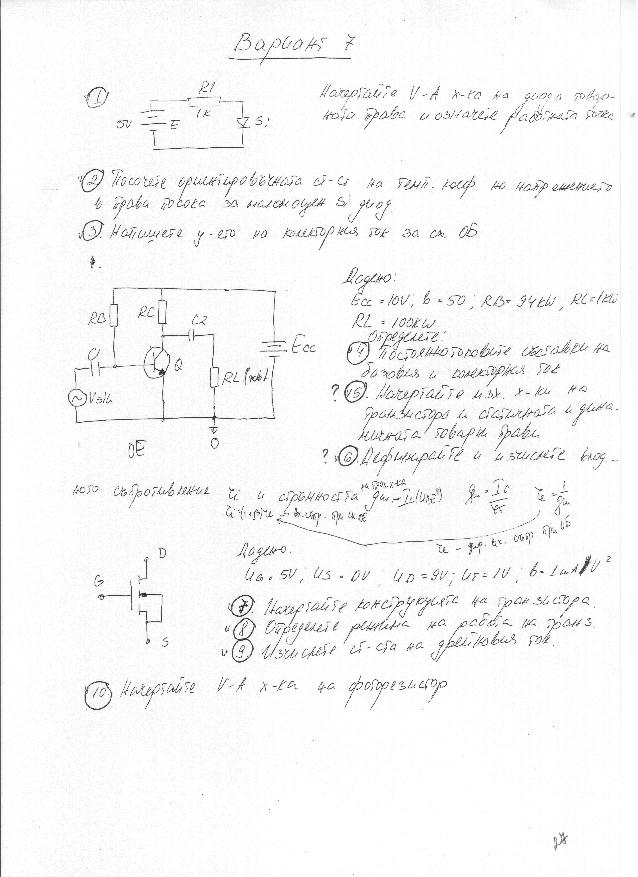 Вариант 7
① R1 1K 5V E Si
Начертайте V-A х-ка на диода товар-
ната права и означете работната точка
② Посочете ориентировъчната ст-ст на темп. коеф. на напрежението
в права посока за маломощен Si диод
③. Напишете у-ето на колекторния ток за сх. ОБ
RB RC C2 C1 Q Ecc RL Vsin 0 OE
Дадено:
Ecc = 10V; b = 50; RB = 94kW, RC = 1kW
RL = 100kW
Определете:
④ Постояннотоковите съставки на
базовия и колекторния ток
? ⑤. Начертайте изх. х-ки на
транзистора и статичната и дина-
мичната товарни прави
? ⑥. Дефинирайте и изчислете вход-
ното съпротивление ri и стръмността gm
Дадено:
G D S
UG = 5V; US = 0V; UD = 9V; UT = 1V; b = 1mA/V²
⑦. Начертайте конструкцията на транзистора.
⑧. Определете режима на работа на транз.
⑨. Изчислете ст-ста на дрейновия ток.
⑩. Начертайте V-A х-ка на фоторезистор
27